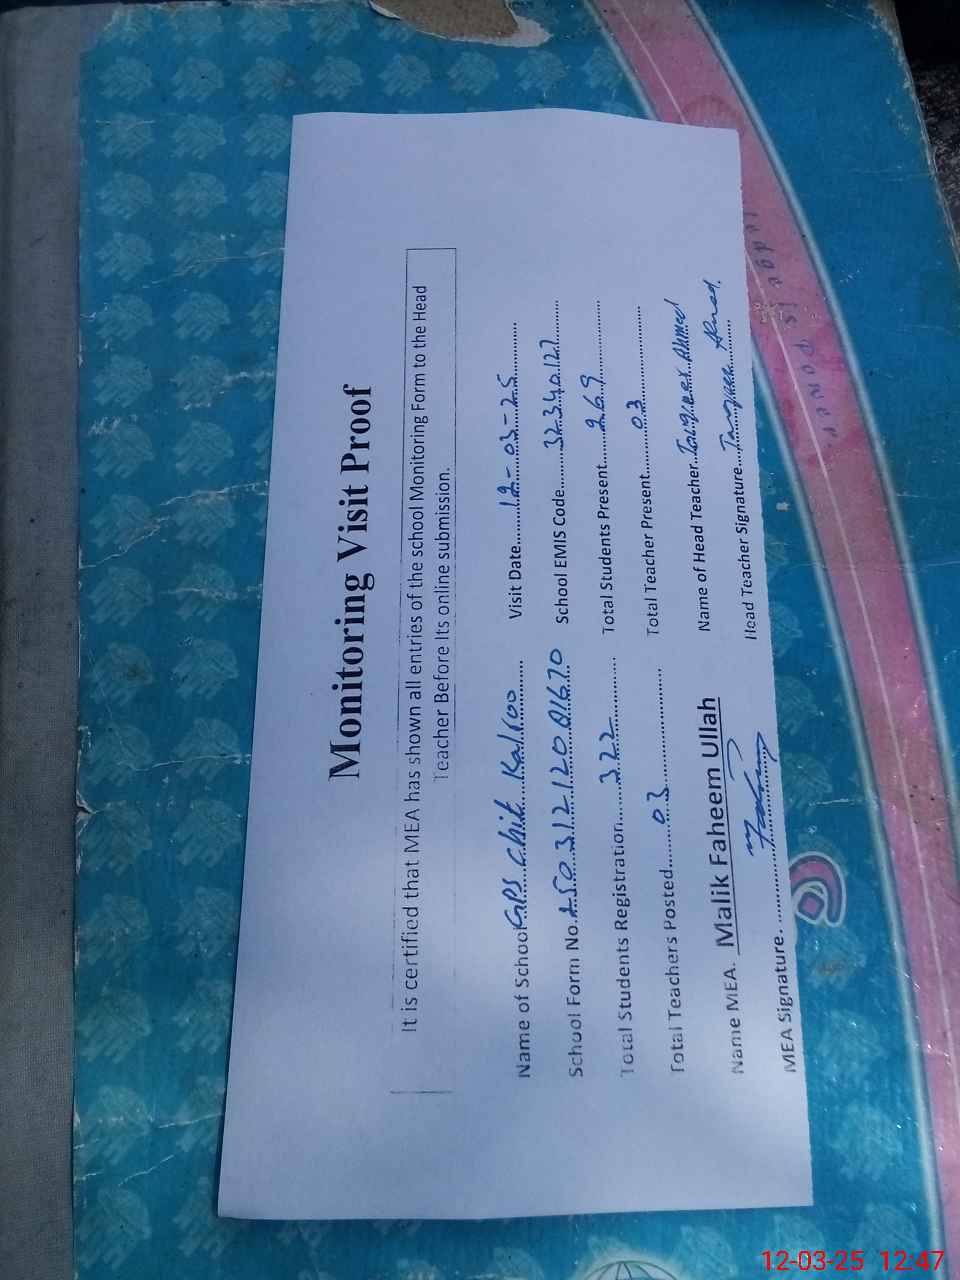 Monitoring Visit Proof
It is certified that MEA has shown all entries of the school Monitoring Form to the Head
Teacher Before Its online submission.
Name of School GPS Chit Kalroo Visit Date 12-03-25
School Form No. 25031212001670 School EMIS Code 32340127
Total Students Registration 322 Total Students Present 269
Total Teachers Posted 03 Total Teacher Present 03
Name MEA. Malik Faheem Ullah Name of Head Teacher Tanveer Ahmed
MEA Signature. Head Teacher Signature Tanveer Ahmed
12-03-25 12:47